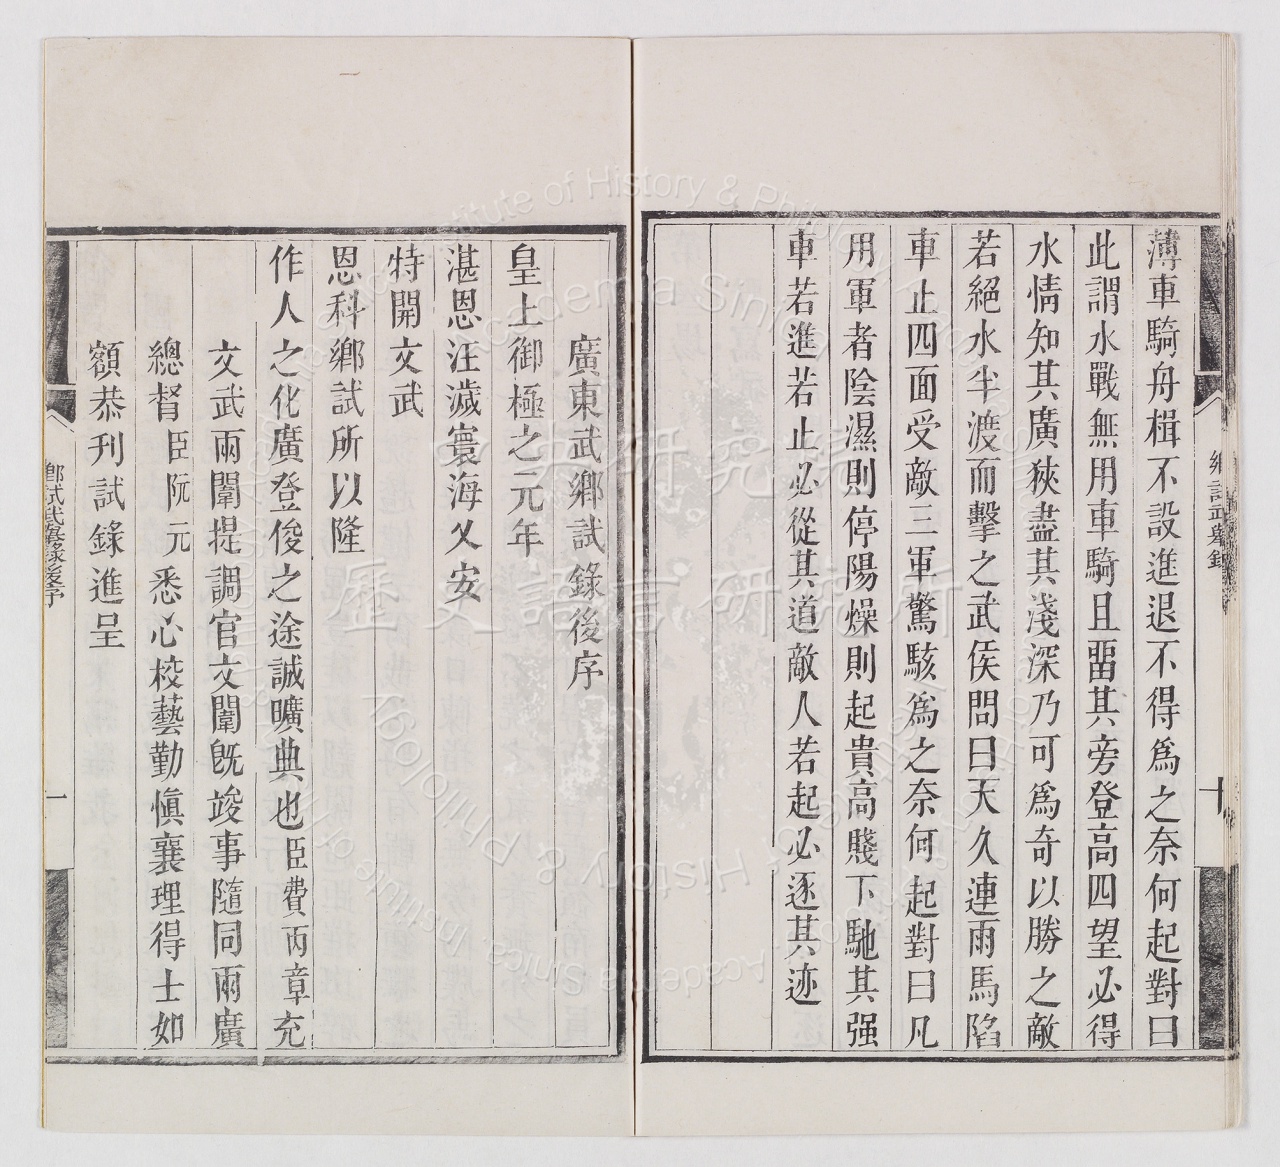 薄車騎舟楫不設進退不得爲之奈何起對曰
此謂水戰無用車騎且畱其旁登高四望必得
水情知其廣狹盡其淺深乃可爲奇以勝之敵
若絕水半渡而擊之武侯問曰天久連雨馬陷
車止四面受敵三軍驚駭爲之奈何起對曰凡
用軍者陰濕則停陽燥則起貴高賤下馳其强
車若進若止必從其道敵人若起必逐其迹
鄉試武舉錄
十
廣東武鄉試錄後序
皇上御極之元年
湛恩汪濊寰海乂安
特開文武
恩科鄉試所以隆
作人之化廣登俊之途誠曠典也臣費丙章充
文武兩闈提調官文闈旣竣事隨同兩廣
總督臣阮元悉心校藝勤愼襄理得士如
額恭刊試錄進呈
鄉試武舉錄後序
一
歷史語言研究所
Institute of History & Philology, Academia Sinica